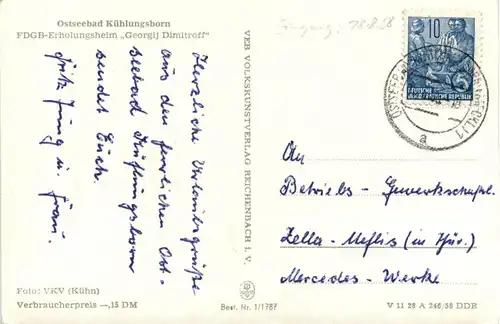 Ostseebad Kühlungsborn
FDGB-Erholungsheim „Georgij Dimitroff"
Herzliche Urlaubergrüße
aus dem herrlichen Ost-
seebad Kühlungsborn
sendet Euch
Fritz Jung u. Frau.
Foto: VKV (Kühn)
Verbraucherpreis —,15 DM
VEB VOLKSKUNSTVERLAG REICHENBACH i. V.
Best. Nr. 1/1787
Eingang: 18.8.58
10
DEUTSCHE
DEMOKRATISCHE REPUBLIK
a
An
Betriebs-Gewerkschaftsl.
Zella-Mehlis (in Thür.)
Mercedes-Werke
V 11 28 A 246/58 DDR